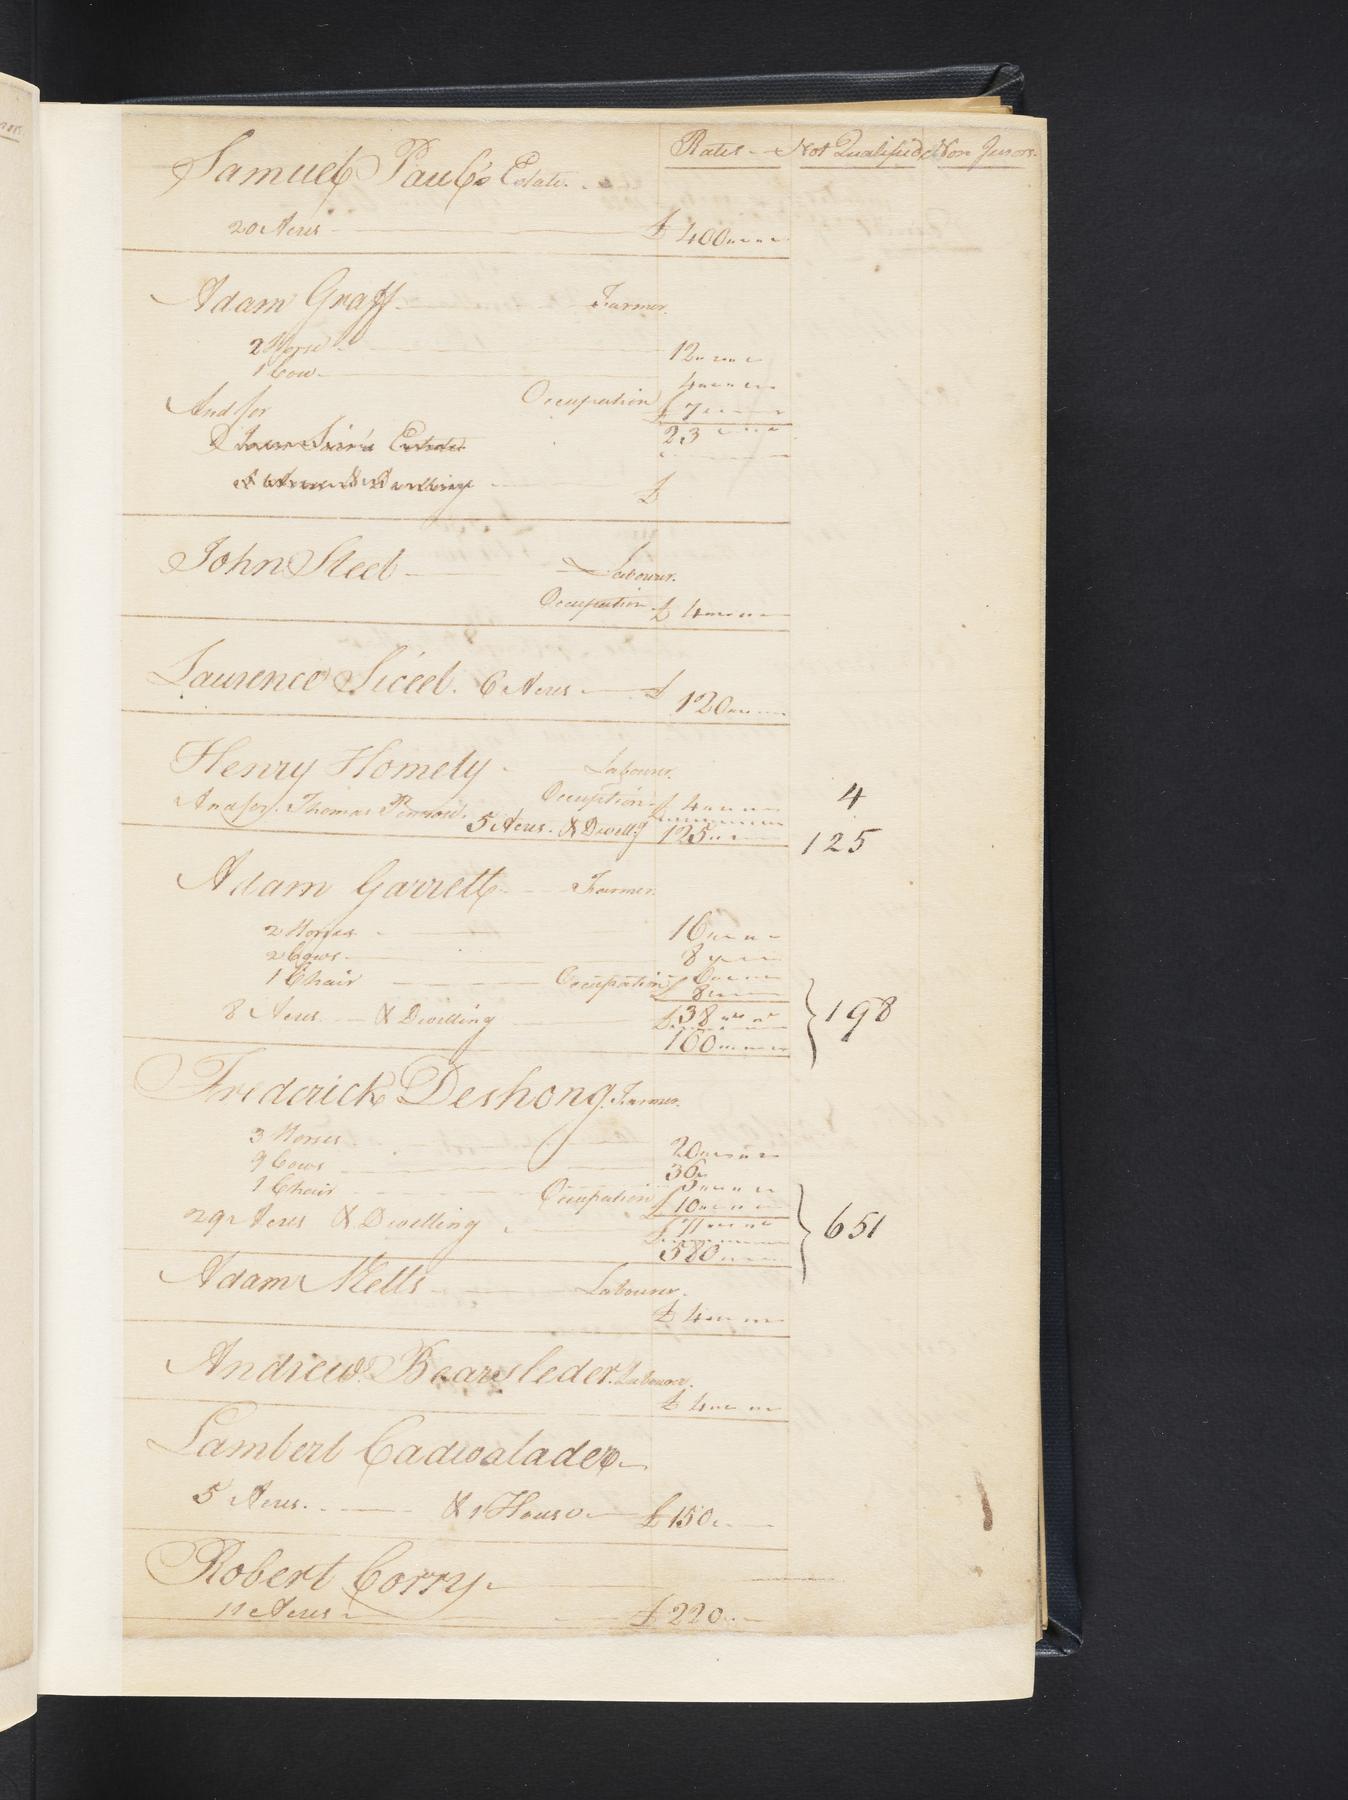 Rates - Not Qualified Non Jurors
Samuel Paul's Estate.
20 Acres £ 400
Adam Graff Farmer.
2 Horse 12
1 Cow 4
Occupation £ 7
And for 23
Estate
& Dwelling £
John Steel Labourer.
Occupation £ 4
Laurence Sickel. 6 Acres £ 120
Henry Homely Labourer.
Occupation £ 4 4
And for Thomas
5 Acres. & Dwellg 125 125
Adam Garrett Farmer.
2 Horses 16
2 Cows 8
1 Chair 6
Occupation £ 8
£ 38 198
8 Acres & Dwelling 160
Frederick Deshong Farmer.
3 Horses 20
9 Cows 36
1 Chair 5
Occupation £ 10
£ 71 651
29 Acres & Dwelling 580
Adam Mells Labourer.
£ 4
Andrew Bearsleder. Labourer.
£ 4
Lambert Cadwalader
5 Acres. & 1 House £ 150
Robert Corry
11 Acres £ 220